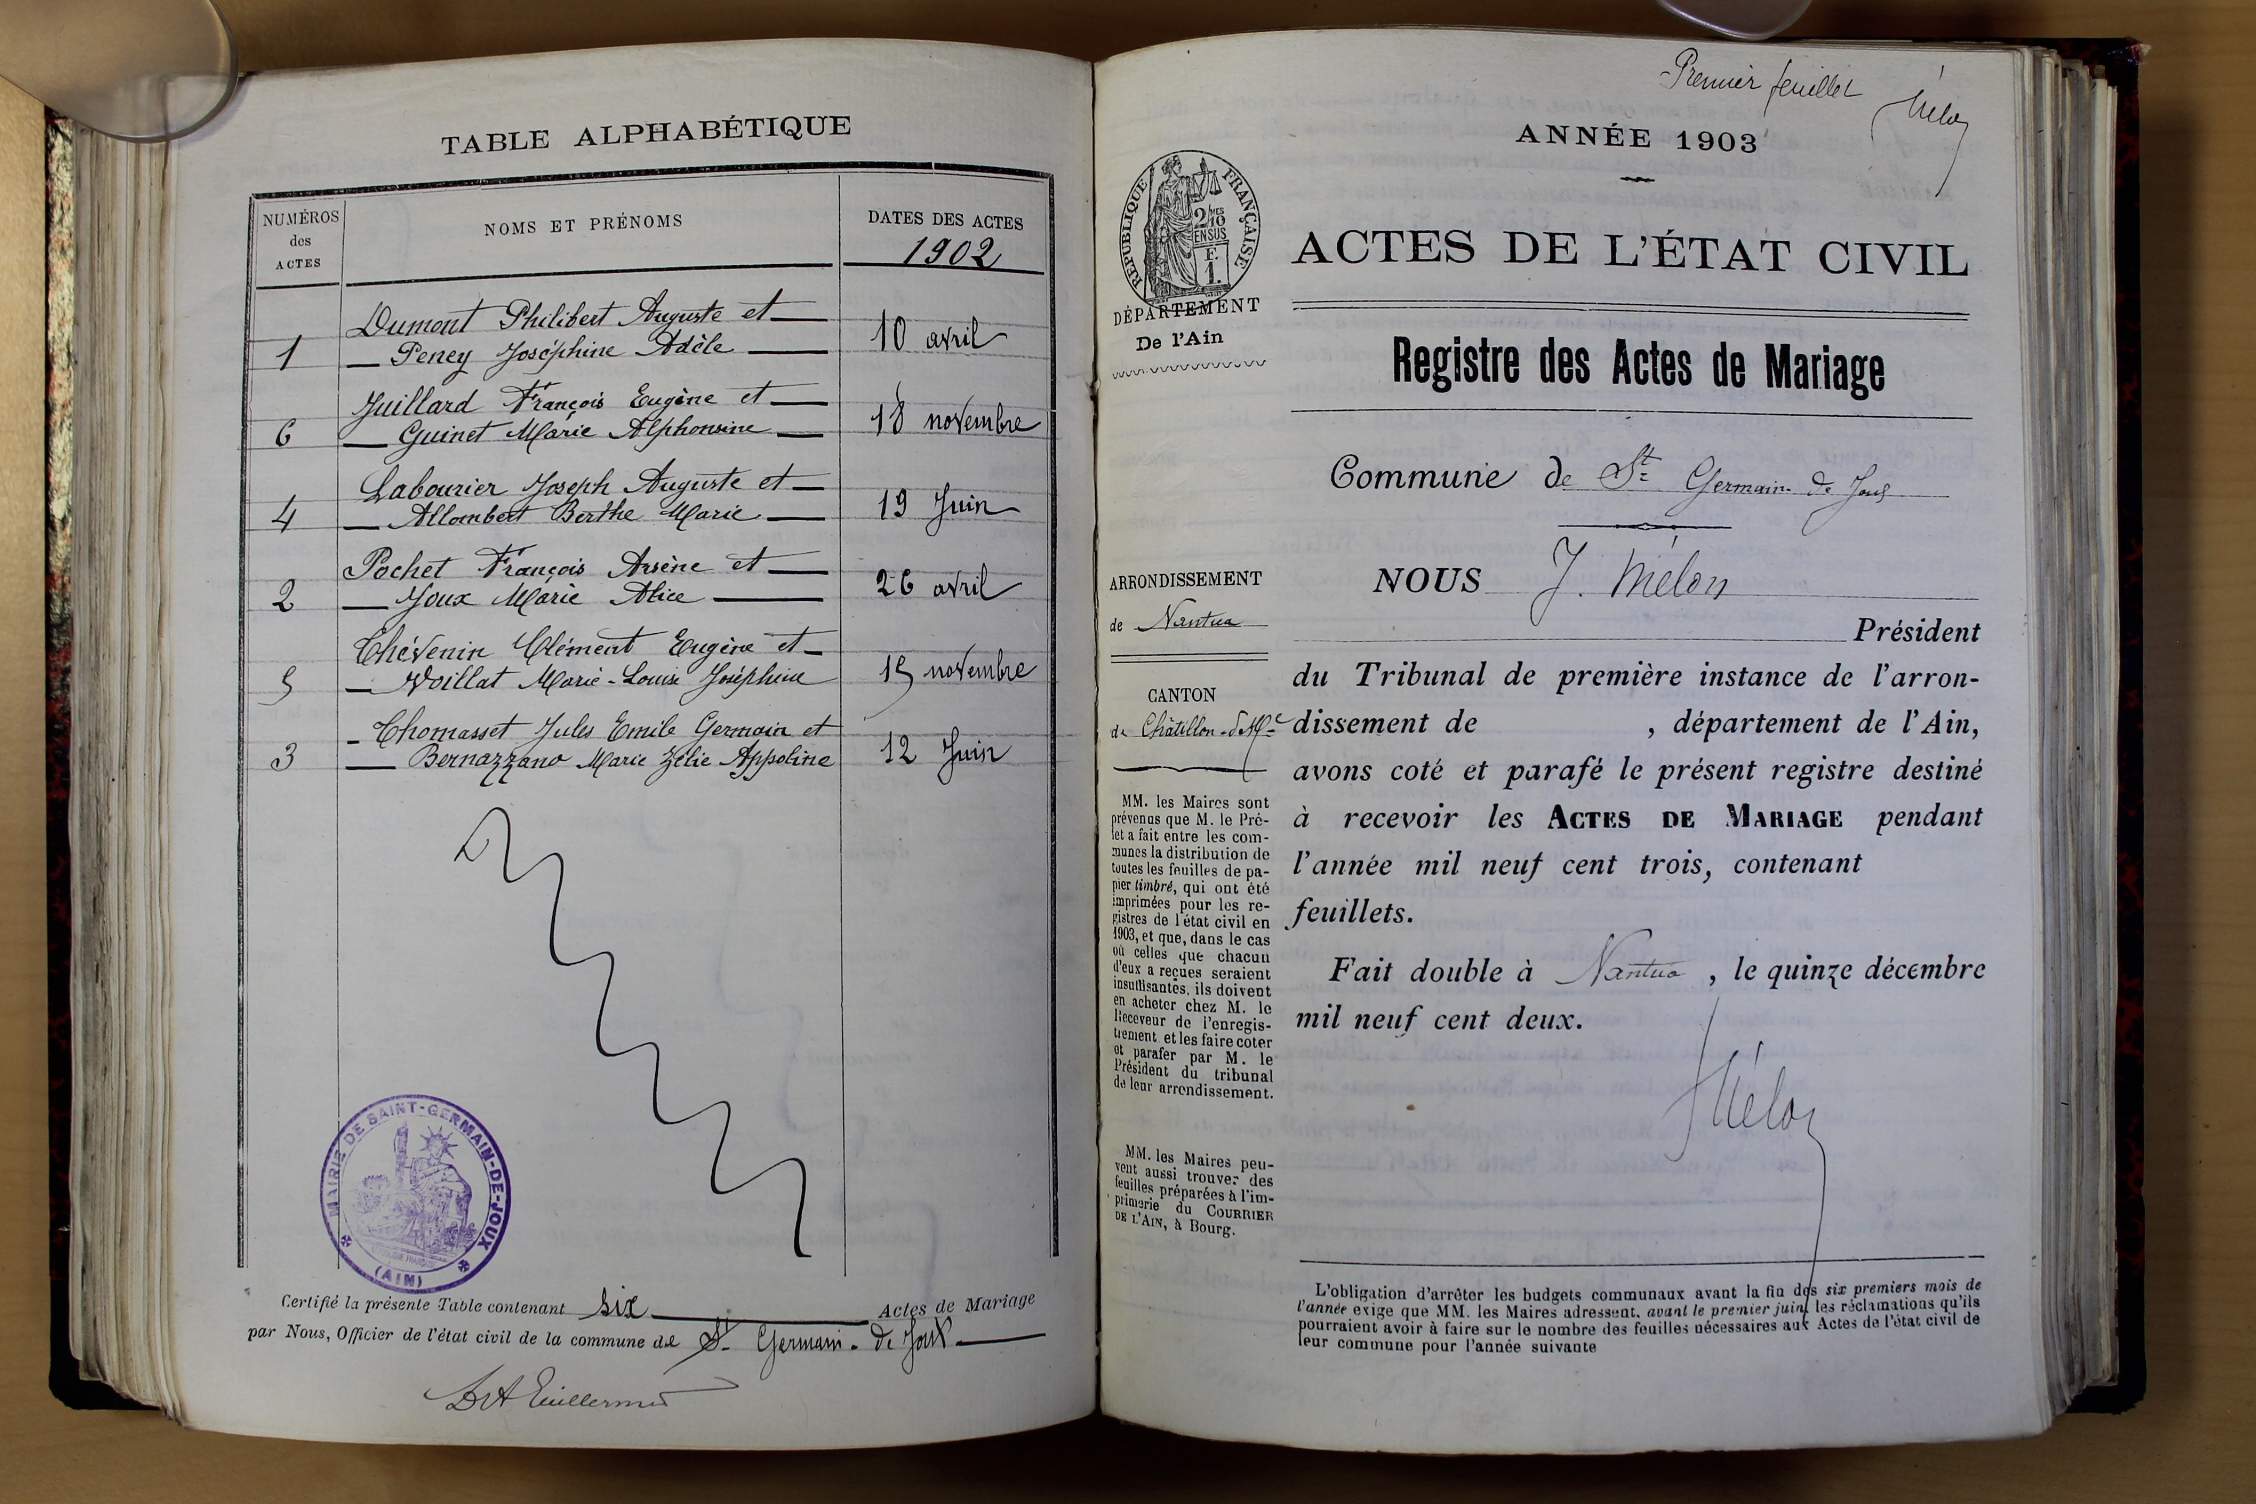 TABLE ALPHABÉTIQUE
NUMÉROS
des
ACTES
NOMS ET PRÉNOMS
DATES DES ACTES
1902
Dumont Philibert Auguste et
1 Peney Joséphine Adèle 10 avril
Juillard François Eugène et
6 Guinet Marie Alphonsine 18 novembre
Labourier Joseph Auguste et
4 Allombert Berthe Marie 19 Juin
Pochet François Arsène et
2 Joux Marie Alice 26 avril
Thévenin Clément Eugène et
5 Voillat Marie-Louise Joséphine 15 novembre
Thomasset Jules Emile Germain et
3 Bernazzano Marie Zélie Appoline 12 Juin
MAIRIE DE SAINT-GERMAIN-DE-JOUX
(AIN)
Certifié la présente Table contenant six Actes de Mariage
par Nous, Officier de l'état civil de la commune de St Germain-de Joux
Premier feuillet
Mélon
ANNÉE 1903
RÉPUBLIQUE FRANÇAISE
2/10
EN SUS
F.
1.
DÉPARTEMENT
De l'Ain
ARRONDISSEMENT
de Nantua
CANTON
de Châtillon-de-Mle
MM. les Maires sont
prévenus que M. le Pré-
fet a fait entre les com-
munes la distribution de
toutes les feuilles de pa-
pier timbré, qui ont été
imprimées pour les re-
gistres de l'état civil en
1903, et que, dans le cas
où celles que chacun
d'eux a reçues seraient
insuffisantes, ils doivent
en acheter chez M. le
Receveur de l'enregis-
trement et les faire coter
et parafer par M. le
Président du tribunal
de leur arrondissement.
MM. les Maires peu-
vent aussi trouver des
feuilles préparées à l'im-
primerie du COURRIER
DE L'AIN, à Bourg.
ACTES DE L'ÉTAT CIVIL
Registre des Actes de Mariage
Commune de St Germain-de Joux
NOUS J. Mélon
Président
du Tribunal de première instance de l'arron-
dissement de , département de l'Ain,
avons coté et parafé le présent registre destiné
à recevoir les ACTES DE MARIAGE pendant
l'année mil neuf cent trois, contenant
feuillets.
Fait double à Nantua, le quinze décembre
mil neuf cent deux.
Mélon
L'obligation d'arrêter les budgets communaux avant la fin des six premiers mois de
l'année exige que MM. les Maires adressent, avant le premier juin, les réclamations qu'ils
pourraient avoir à faire sur le nombre des feuilles nécessaires aux Actes de l'état civil de
leur commune pour l'année suivante